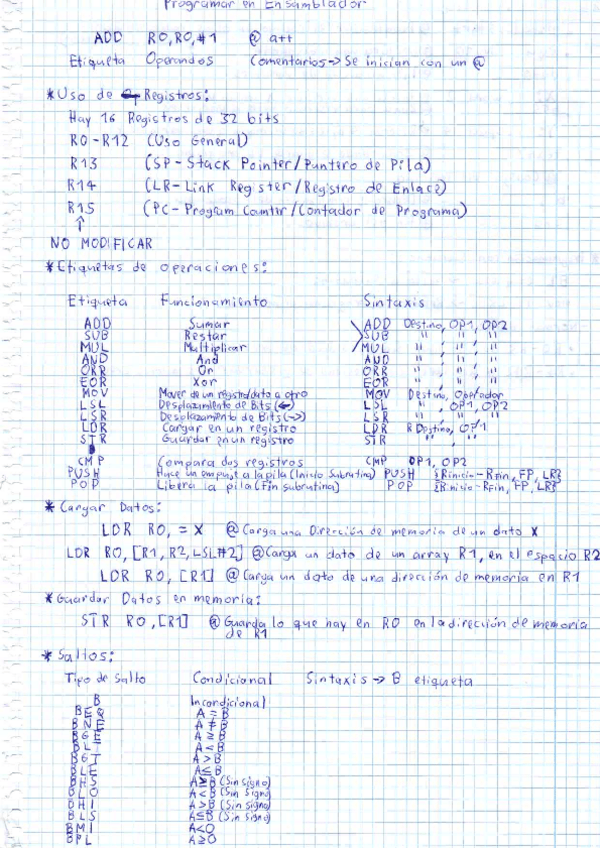 Programar en Ensamblador
ADD R0,R0,#1 @ a++
Etiqueta Operandos Comentarios→Se inician con un @
*Uso de Registros:
Hay 16 Registros de 32 bits
R0-R12 (Uso General)
R13 (SP-Stack Pointer/Puntero de Pila)
R14 (LR-Link Register/Registro de Enlace)
R15 (PC-Program Countir/Contador de Programa)
↑
NO MODIFICAR
*Etiquetas de operaciones:
Etiqueta Funcionamiento Sintaxis
ADD Sumar ADD Destino, OP1, OP2
SUB Restar SUB " , " , "
MUL Multiplicar MUL " , " , "
AND And AND " , " , "
ORR Or ORR " , " , "
EOR Xor EOR " , " , "
MOV Mover de un registro/dato a otro MOV Destino, Operador
LSL Desplazamiento de Bits (←) LSL " , OP1, OP2
LSR Desplazamiento de Bits (->) LSR " , " , "
LDR Cargar en un registro LDR R Destino, OP1
STR Guardar en un registro STR " , "
CMP Compara dos registros CMP OP1, OP2
PUSH Hace un empuje a la pila (Inicio Subrutina) PUSH {Rinicio-RFin, FP, LR}
POP Libera la pila (Fin subrutina) POP {Rinicio-RFin, FP, LR}
* Cargar Datos:
LDR R0, = X @ Carga una Dirección de memoria de un dato X
LDR R0, [R1, R2, LSL#2] @ Carga un dato de un array R1, en el espacio R2
LDR R0, [R1] @ Carga un dato de una dirección de memoria en R1
*Guardar Datos en memoria:
STR R0,[R1] @ Guarda lo que hay en R0 en la dirección de memoria
de R1
* Saltos:
Tipo de Salto Condicional Sintaxis → B etiqueta
B Incondicional
BEQ A = B
BNE A ≠ B
BGE A ≥ B
BLT A < B
BGT A > B
BLE A ≤ B
BHS A ≥ B (Sin Signo)
BLO A < B (Sin Signo)
BHI A > B (Sin Signo)
BLS A ≤ B (Sin Signo)
BMI A<0
BPL A≥0